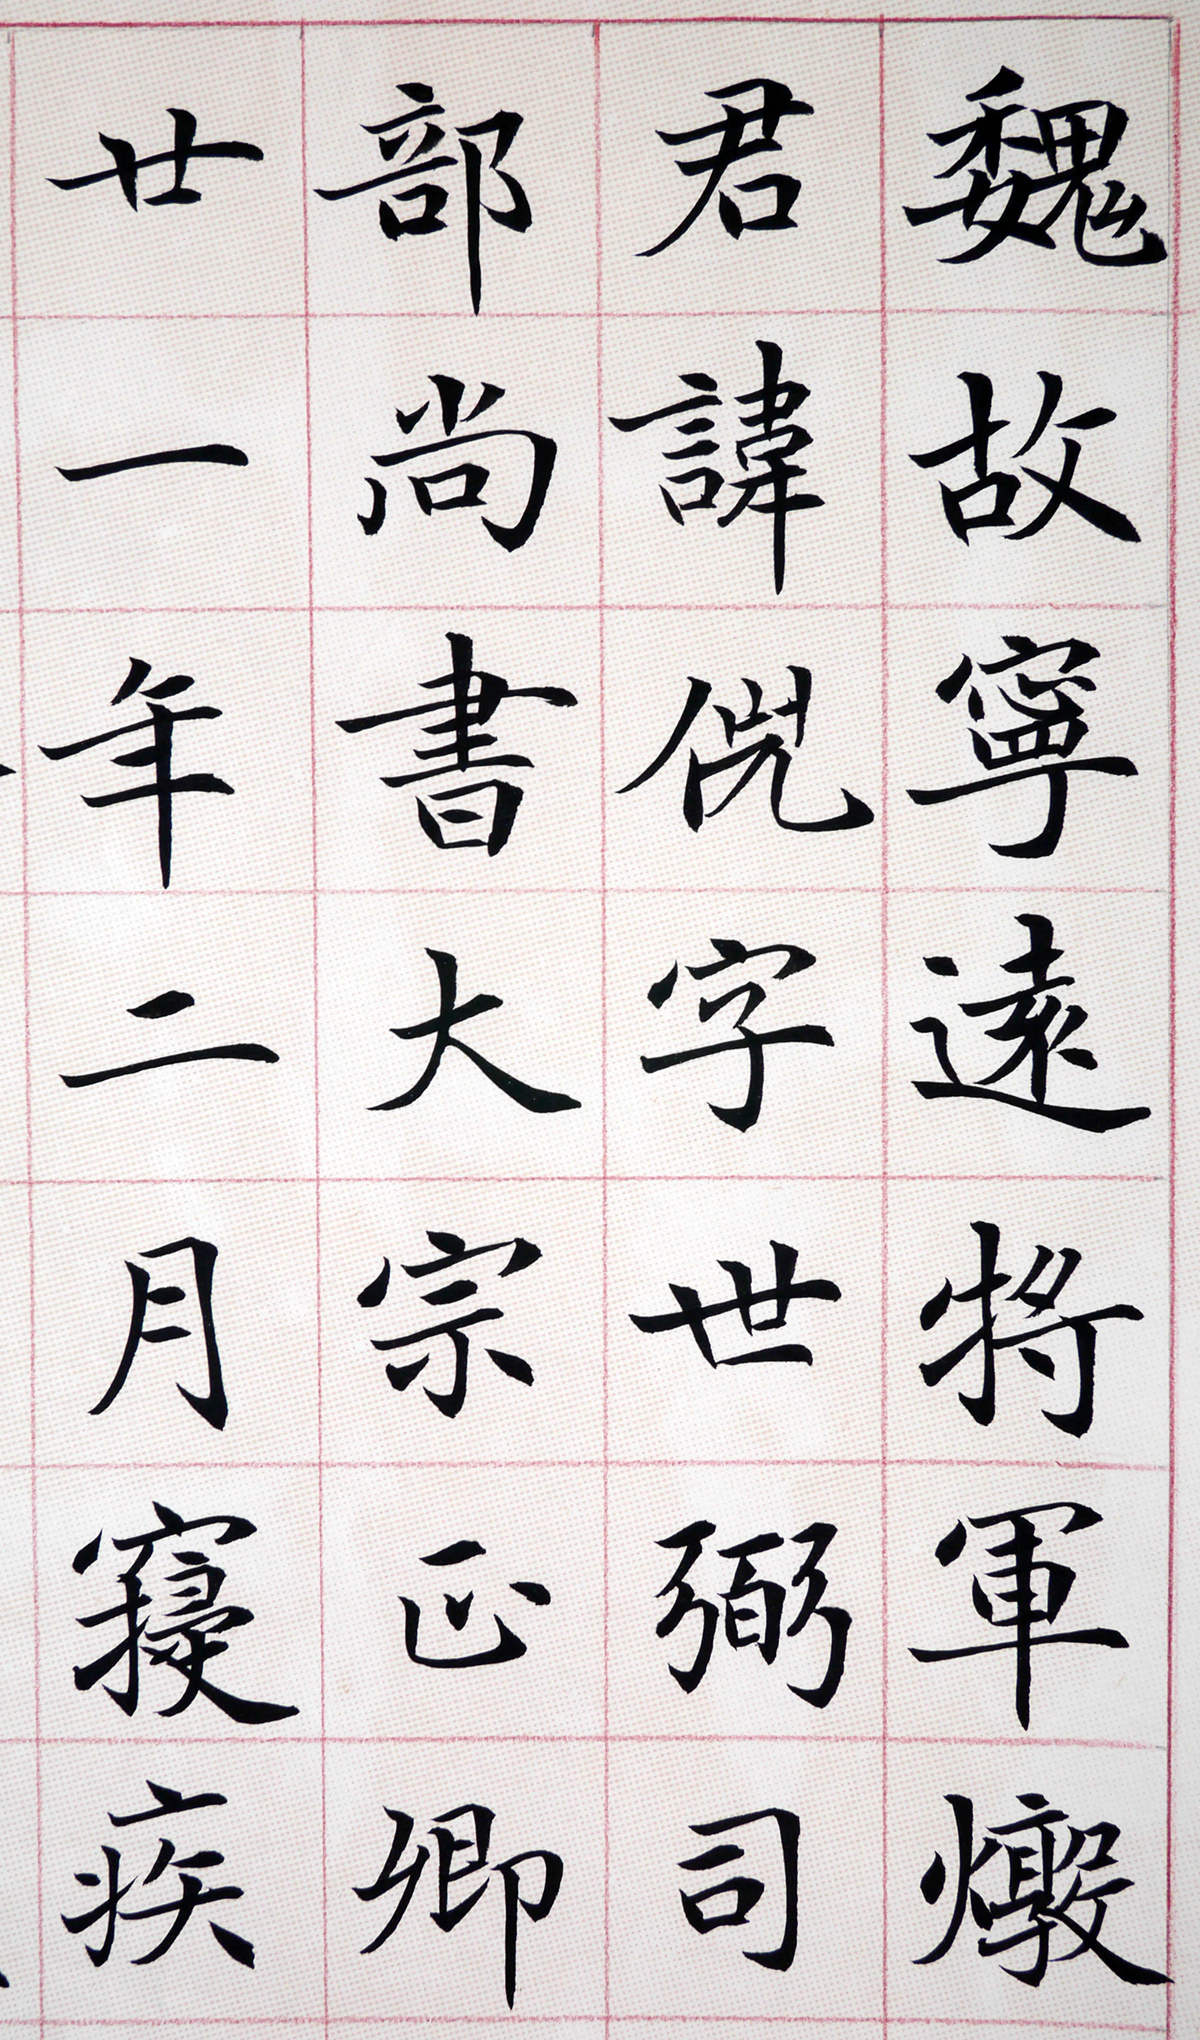 魏故寧遠將軍燉
君諱倪字世弼司
部尚書大宗正卿
廿一年二月寢疾